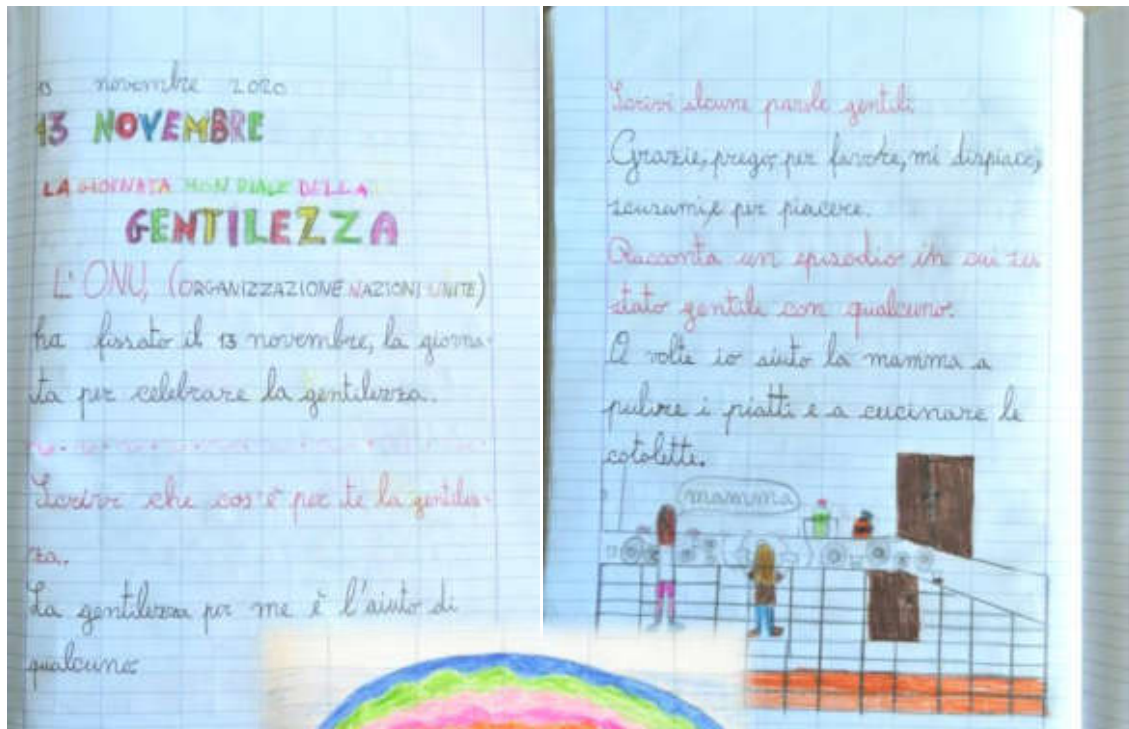 novembre 2020
13 NOVEMBRE
LA GIORNATA MONDIALE DELLA
GENTILEZZA
L' ONU, (ORGANIZZAZIONE NAZIONI UNITE)
ha fissato il 13 novembre, la giorna-
ta per celebrare la gentilezza.
Scrivi che cos'è per te la gentilez-
za.
La gentilezza per me è l'aiuto di
qualcuno.
Scrivi alcune parole gentili.
Grazie, prego, per favore, mi dispiace,
scusami, e per piacere.
Racconta un episodio in cui sei
stato gentile con qualcuno.
A volte io aiuto la mamma a
pulire i piatti e a cucinare le
cotolette.
mamma